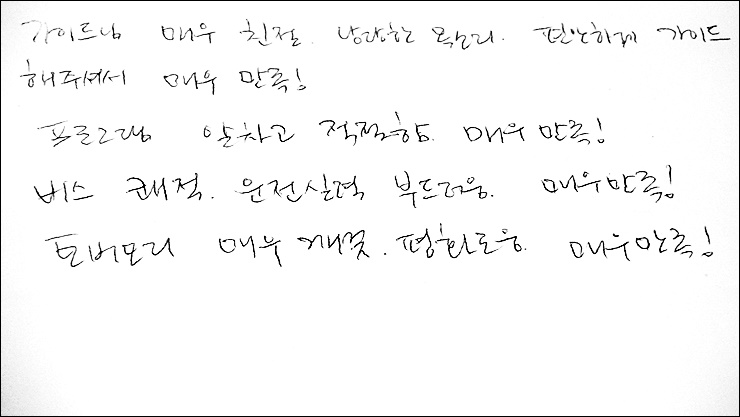 가이드님 매우 친절. 낭랑한 목소리. 편안하게 가이드
해주셔서 매우 만족!
프로그램 알차고 적절함. 매우 만족!
버스 쾌적. 운전실력 부드러움. 매우만족!
토버모리 매우 깨끗. 평화로움. 매우만족!